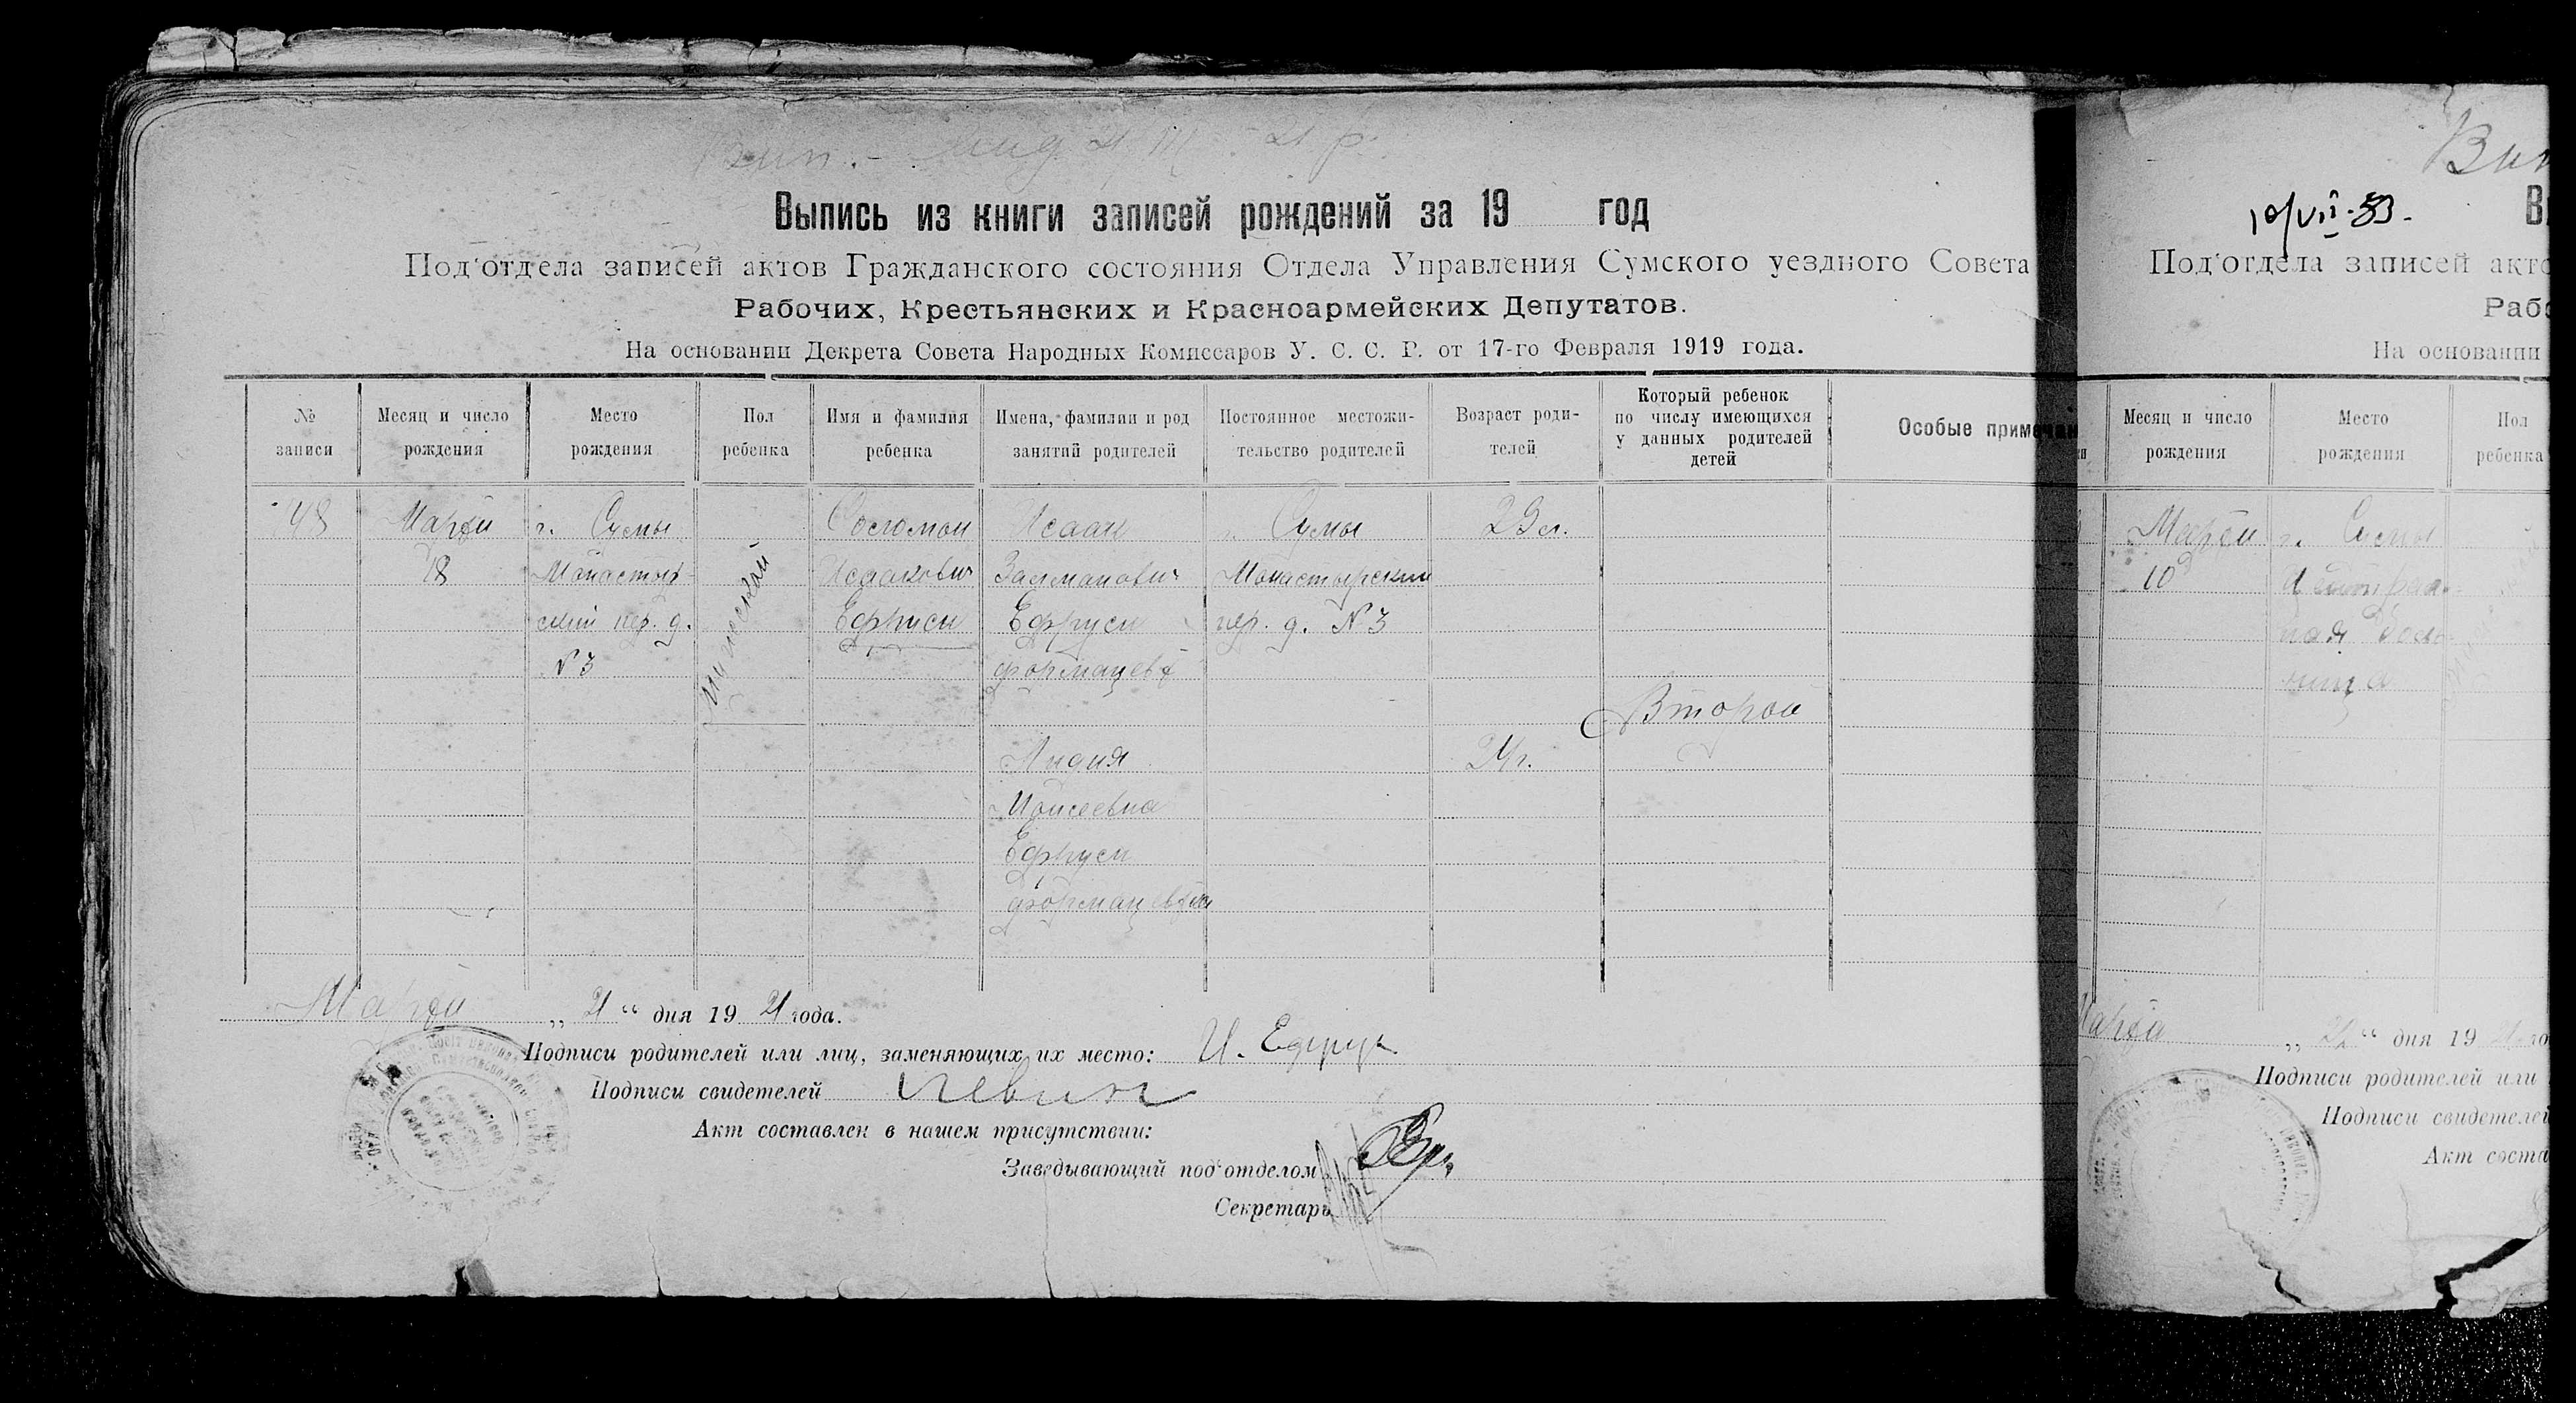 Выпись из книги записей рождений за 19 год
Под'отдела записей актов Гражданского состояния Отдела Управления Сумского уездного Совета
Рабочих, Крестьянских и Красноармейских Депутатов.
На основании Декрета Совета Народных Комиссаров У. С. С. Р. от 17-го Февраля 1919 года.
№ записи
Месяц и число рождения
Место рождения
Пол ребенка
Имя и фамилия ребенка
Имена, фамилии и род занятий родителей
Постоянное местожительство родителей
Возраст родителей
Который ребенок по числу имеющихся у данных родителей детей
Особые примечан
48
Марта
18
г. Сумы
Монастыр-
ский пер. д.
№ 3
мужской
Соломон
Исаакович
Ефруси
Исаак
Залманович
Ефруси
фармацевт
Лидия
Моисеевна
Ефруси
фармацевтка
г. Сумы
Монастырский
пер. д. № 3
29 л.
24 г.
Второй
Марта „ 21 “ дня 19 21 года.
Подписи родителей или лиц, заменяющих их место: И. Ефрус
Подписи свидетелей Левин
Акт составлен в нашем присутствии:
Заведывающий под'отделом
Секретарь
10/VII-83.
В
Под'отдела записей акто
Рабо
На основании
Месяц и число рождения
Место рождения
Пол ребенка
Марта
10
г. Сумы
Централь-
ная боль-
ница
Марта „ 22 “ дня 19
Подписи родителей или
Подписи свидетелей
Акт соста